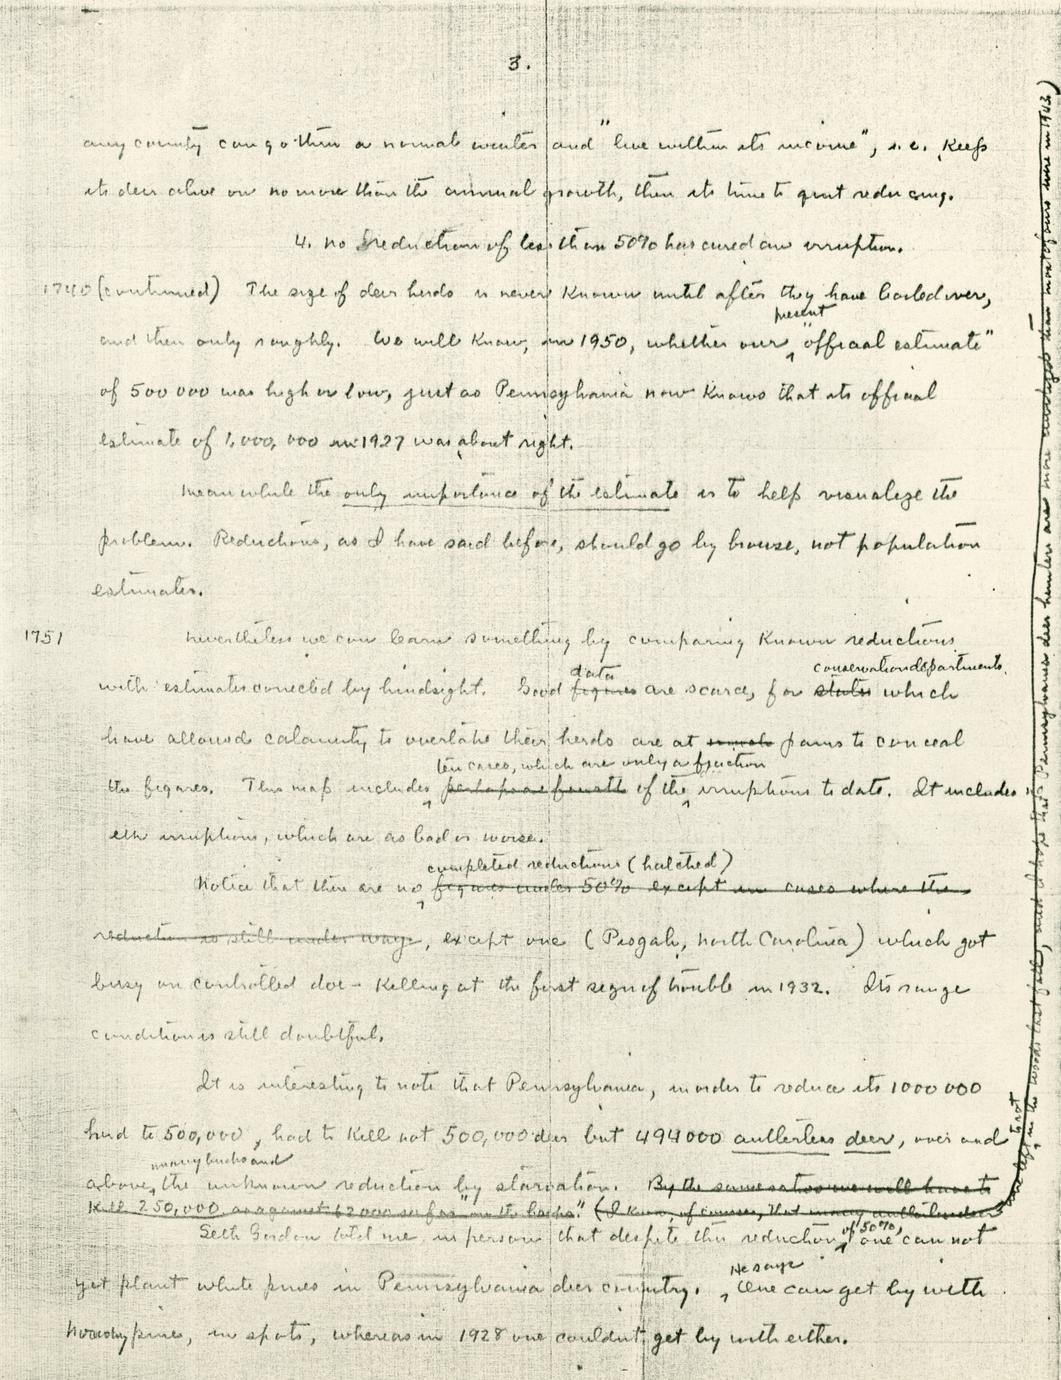 3.
any county can go thru a normal winter and "live within its income", i.e. keep
its deer alive on no more than the annual growth, then its time to quit reducing.
4. no reduction of less than 50% has cured an irruption.
1740 (continued) The size of deer herds is never known until after they have boiled over,
present
and then only roughly. We will know, in 1950, whether our "official estimate"
of 500 000 was high or low, just as Pennsylvania now knows that its official
estimate of 1,000,000 in 1927 was about right.
Meanwhile the only importance of the estimate is to help visualize the
problem. Reductions, as I have said before, should go by browse, not population
estimates.
1751 Nevertheless we can learn something by comparing known reductions
data conservation departments
with estimates corrected by hindsight. Good figures are scarce, for states which
have allowed calamity to overtake their herds are at such pains to conceal
ten cases, which are only a fraction
the figures. This map includes perhaps a fourth of the irruptions to date. It includes
elk irruptions, which are as bad or worse.
completed reductions (hatched)
Notice that there are no figures under 50% except in cases where the
reduction is still under way, except one (Pisgah, North Carolina) which got
busy on controlled doe-killing at the first sign of trouble in 1932. Its range
condition is still doubtful.
It is interesting to note that Pennsylvania, in order to reduce its 1000 000
herd to 500,000, had to kill not 500,000 deer but 494000 antlerless deer, over and
many bucks and
above the unknown reduction by starvation. By the same ratios we will have to
kill 250,000 as against 62000 so far "in the bag." (I know, of course, that many antlerless deer
of 50%,
Seth Gordon told me in person that despite this reduction one can not
He says
yet plant white pines in Pennsylvania deer country. One can get by with
Norway pines, in spots, whereas in 1928 one couldn't get by with either.
were left in the woods last fall, and I hope that Pennsylvania deer hunters are more civilized than most of ours were in 1943)
to rot